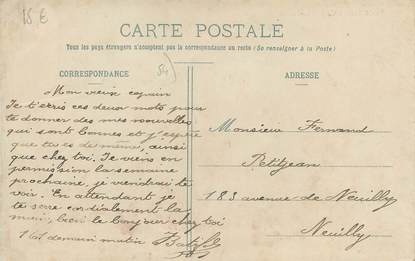 15 €
CARTE POSTALE
Tous les pays étrangers n'acceptent pas la correspondance au recto (Se renseigner à la Poste)
CORRESPONDANCE
54
ADRESSE
Mon vieux copain
Je t'écris ces deux mots pour
te donner des mes nouvelles
qui sont bonnes et j'espère
que tu es de même, ainsi
que chez toi. Je viens en
permission la semaine
prochaine, je viendrai te
voir. En attendant je
te serre cordialement la
main, bien le bonjour chez toi
demain matin
Monsieur Fernand
Petitjean
183 avenue de Neuilly
Neuilly